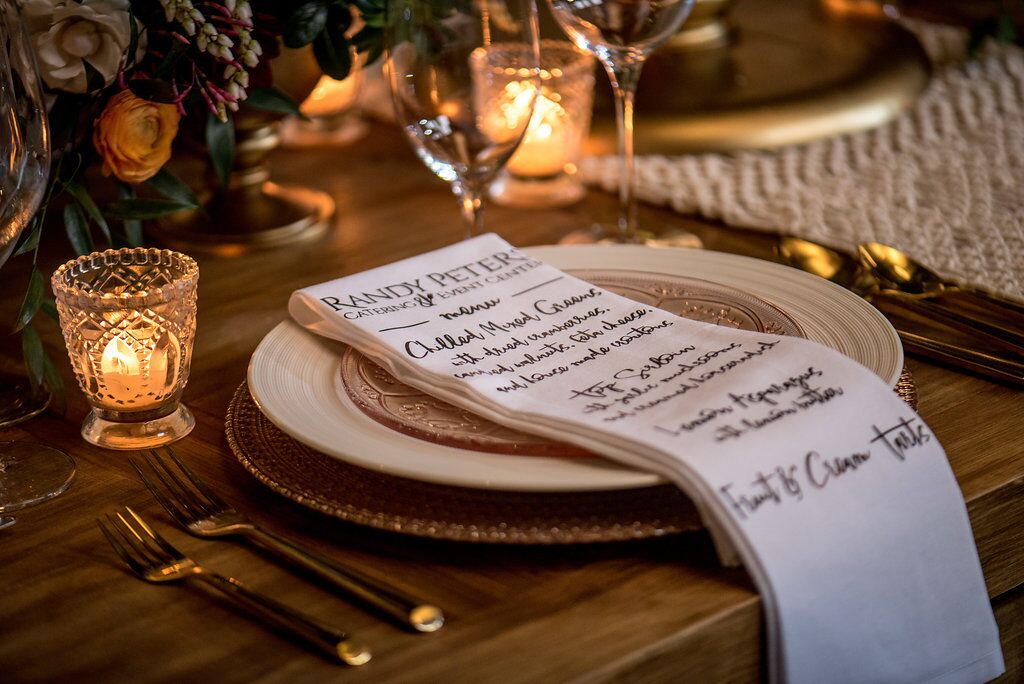 RANDY PETERS
CATERING & EVENT CENTER
menu
Chilled Mixed Greens
with dried cranberries,
candied walnuts, feta cheese,
and house made croutons
Top Sirloin
with
and
Lemon Asparagus
with lemon butter
Fruit & Cream tarts